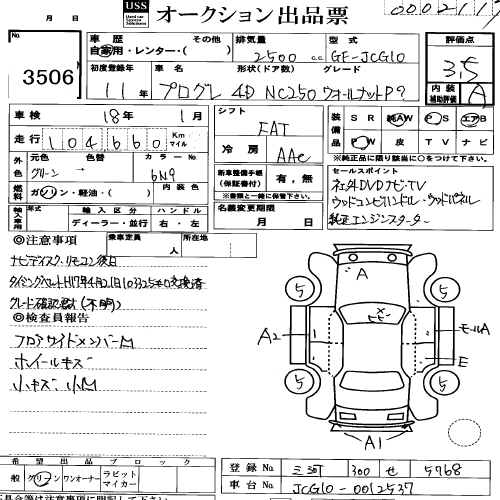 月 日
USS オークション出品票
3506
車歴 自家用・レンター・( ) その他
排気量 2500 cc
型式 GF-JCG10
評価点 3.5
初度登録年 11年
車名 プログレ 4D NC250 ウォールナットP?
形状(ドア数) グレード
内装 補助評価 A
車検 18年 1月
シフト FAT
装備品 SR 純AW PS エアB
PW 皮 TV ナビ
走行 104660 Km マイル
冷房 AAC
※純正品に限り該当に○をつけて下さい
外色 元色 グリーン 色替 → カラーNo 6N9
新車整備手帳(保証書付) 有・無
※書類と一緒に保管して下さい。
セールスポイント
社外DVDナビ・TV
ウッドコンビハンドル・ウッドパネル
純正エンジンスターター
燃料 ガソリン・軽油・( ) 内装色
名義変更期限 月 日
輸入車用 年式 輸入区分 ハンドル
ディーラー・並行 右・左
◎注意事項 乗車定員 人 所在地
ナビディスク、リモコン後日
タイミングベルトH17年4月21日103325キロ交換済
グレード確認願う(不明)
◎検査員報告
フロアサイドメンバーM
ホイールキズ
小キズ、小M
A
5 5
A2 モールA
E
5 5
A1
希望出品ブロック
一般 グリーン ワンオーナー ラビットマイカー
登録No. 三河 300 せ 5768
車台No. JCG10-0012537